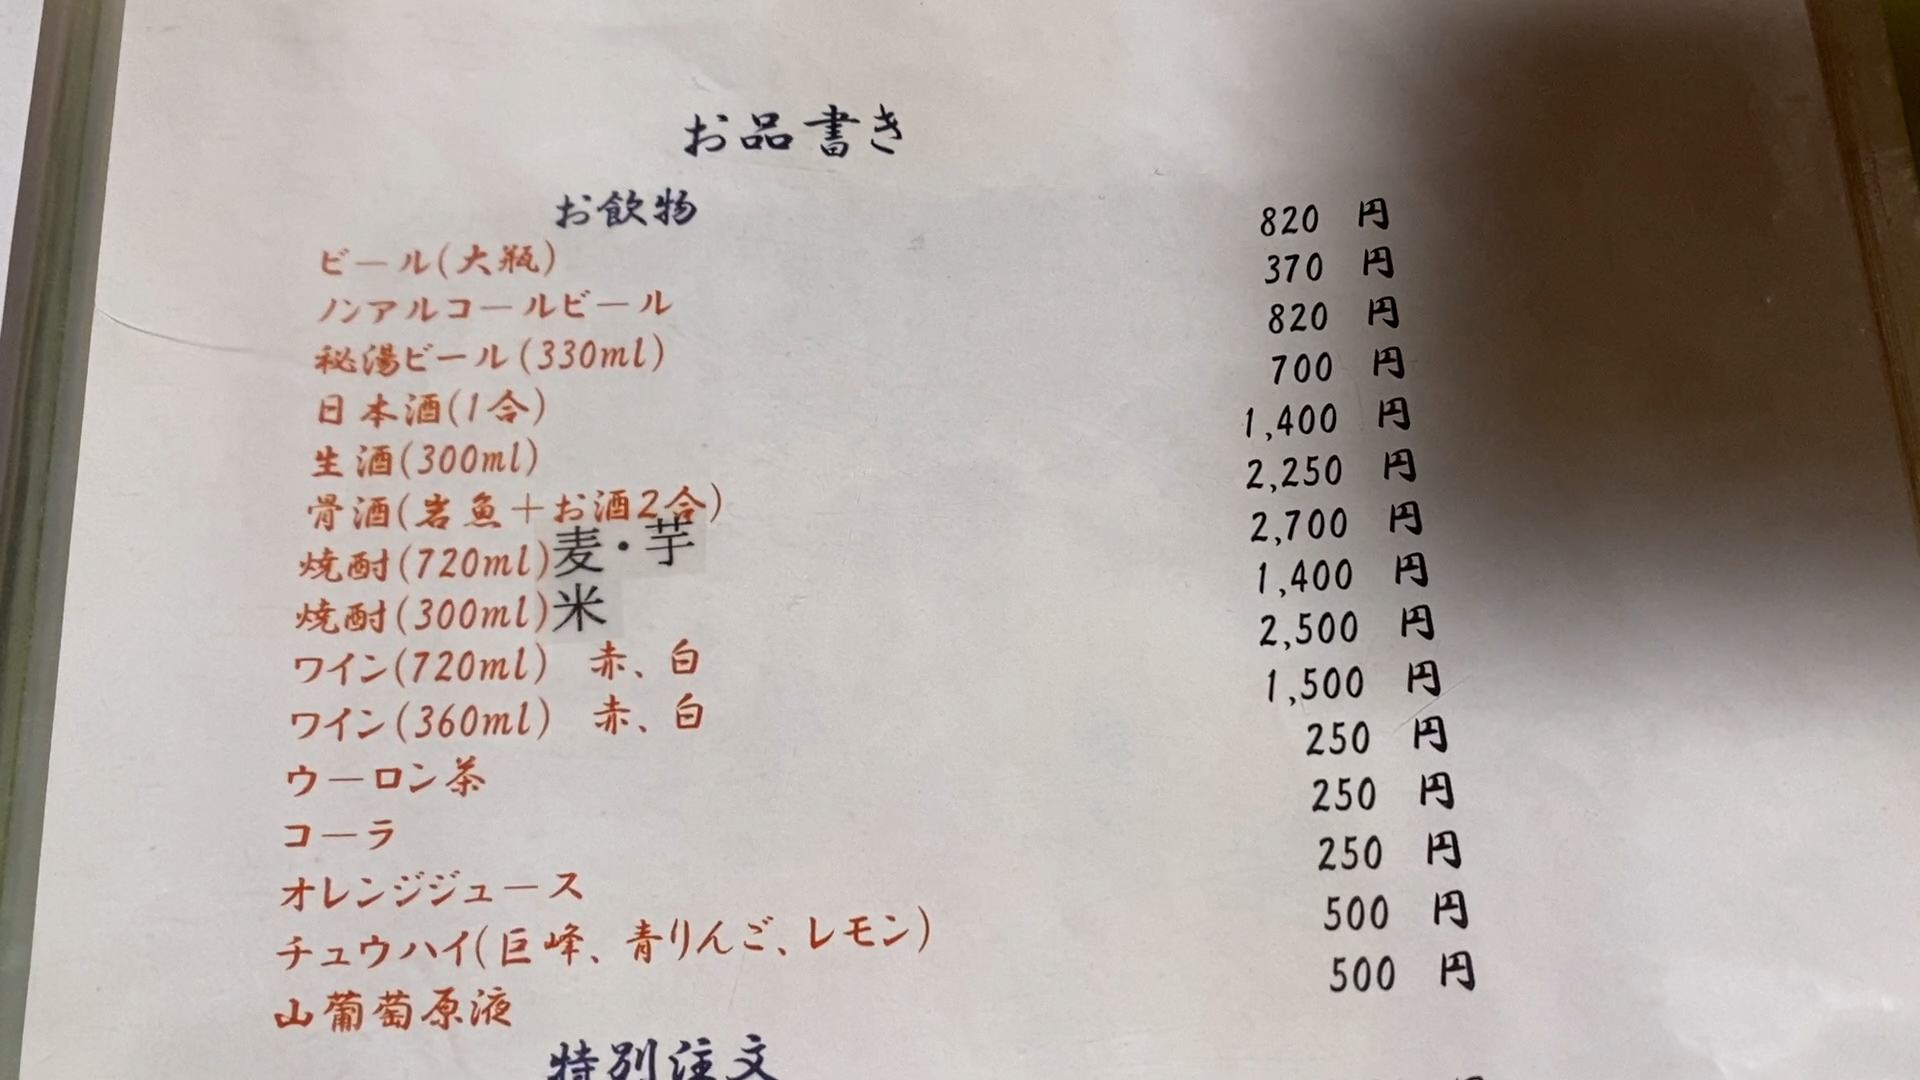 お品書き
お飲物
ビール(大瓶) 820 円
ノンアルコールビール 370 円
秘湯ビール(330ml) 820 円
日本酒(1合) 700 円
生酒(300ml) 1,400 円
骨酒(岩魚＋お酒2合) 2,250 円
焼酎(720ml)麦・芋 2,700 円
焼酎(300ml)米 1,400 円
ワイン(720ml) 赤、白 2,500 円
ワイン(360ml) 赤、白 1,500 円
ウーロン茶 250 円
コーラ 250 円
オレンジジュース 250 円
チュウハイ(巨峰、青りんご、レモン) 500 円
山葡萄原液 500 円
特別注文